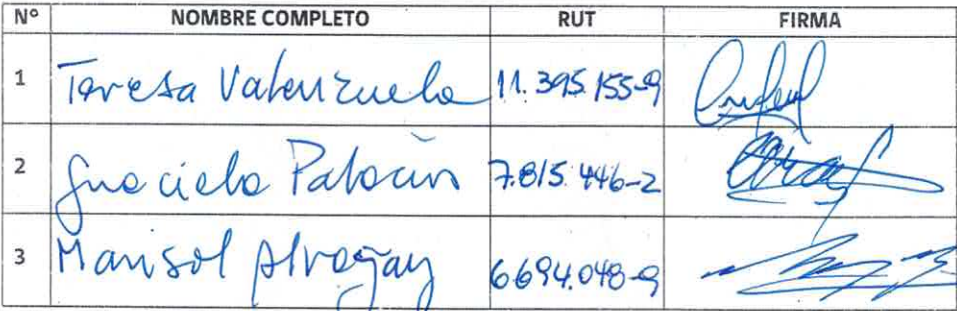 Nº NOMBRE COMPLETO RUT FIRMA
1 Teresa Valenzuela 11.395.155-9
2 Graciela Palacios 7.815.446-2
3 Marisol 6.694.048-9